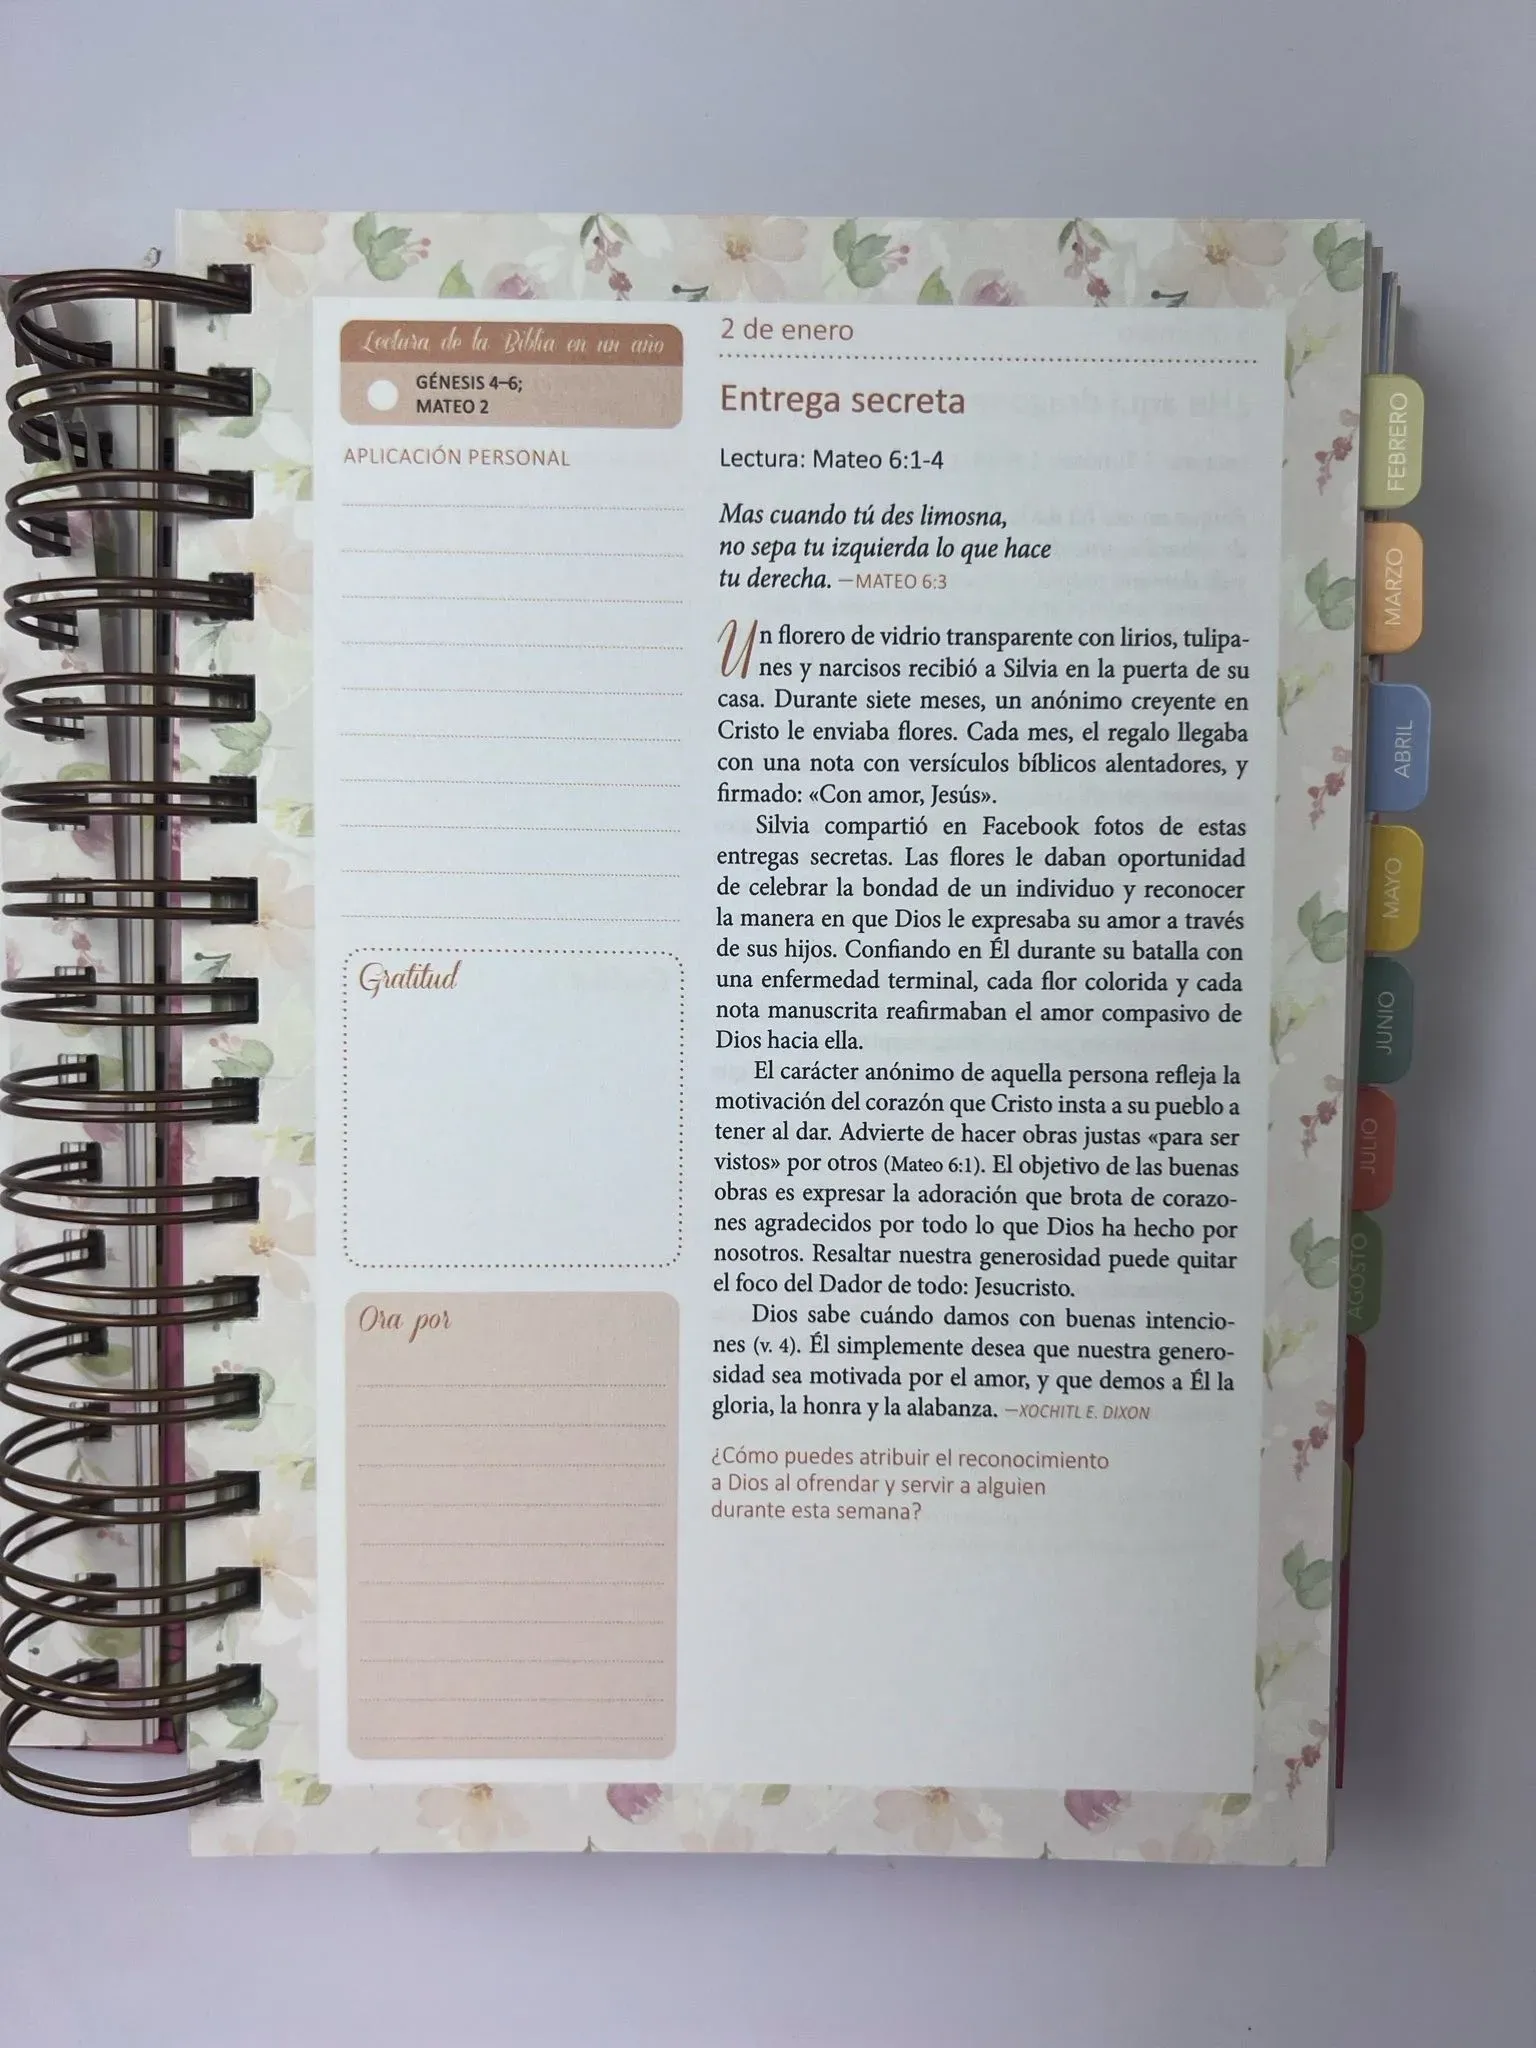 Lectura de la Biblia en un año
GÉNESIS 4–6;
MATEO 2
APLICACIÓN PERSONAL
Gratitud
Ora por
2 de enero
Entrega secreta
Lectura: Mateo 6:1-4
Mas cuando tú des limosna,
no sepa tu izquierda lo que hace
tu derecha. —MATEO 6:3
Un florero de vidrio transparente con lirios, tulipa-
nes y narcisos recibió a Silvia en la puerta de su
casa. Durante siete meses, un anónimo creyente en
Cristo le enviaba flores. Cada mes, el regalo llegaba
con una nota con versículos bíblicos alentadores, y
firmado: «Con amor, Jesús».
Silvia compartió en Facebook fotos de estas
entregas secretas. Las flores le daban oportunidad
de celebrar la bondad de un individuo y reconocer
la manera en que Dios le expresaba su amor a través
de sus hijos. Confiando en Él durante su batalla con
una enfermedad terminal, cada flor colorida y cada
nota manuscrita reafirmaban el amor compasivo de
Dios hacia ella.
El carácter anónimo de aquella persona refleja la
motivación del corazón que Cristo insta a su pueblo a
tener al dar. Advierte de hacer obras justas «para ser
vistos» por otros (Mateo 6:1). El objetivo de las buenas
obras es expresar la adoración que brota de corazo-
nes agradecidos por todo lo que Dios ha hecho por
nosotros. Resaltar nuestra generosidad puede quitar
el foco del Dador de todo: Jesucristo.
Dios sabe cuándo damos con buenas intencio-
nes (v. 4). Él simplemente desea que nuestra genero-
sidad sea motivada por el amor, y que demos a Él la
gloria, la honra y la alabanza. —XOCHITL E. DIXON
¿Cómo puedes atribuir el reconocimiento
a Dios al ofrendar y servir a alguien
durante esta semana?
FEBRERO
MARZO
ABRIL
MAYO
JUNIO
JULIO
AGOSTO